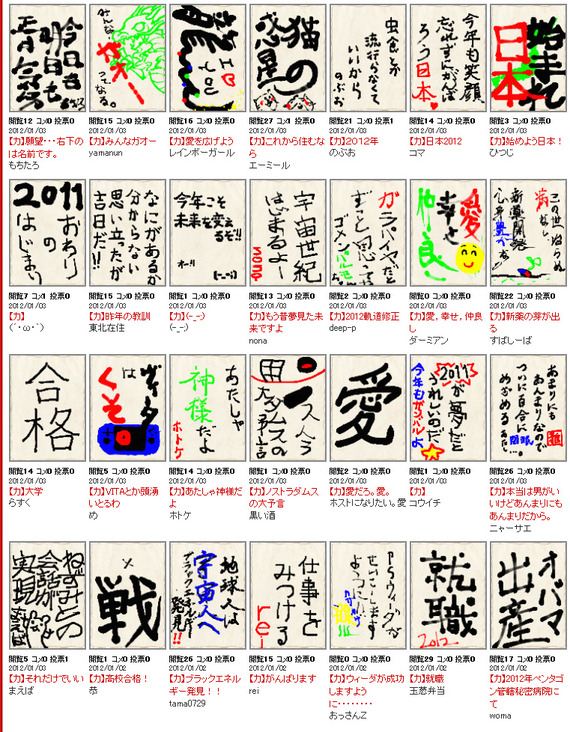 今日も
明日も
青気
閲覧12 コメ0 投票0
2012/01/03
【力】願望・・・右下の
は名前です。
もちたろ
みんな、
ガオー
ってなる。
閲覧15 コメ0 投票0
2012/01/03
【力】みんなガオー
yamanun
龍
閲覧16 コメ0 投票0
2012/01/03
【力】愛を広げよう
レインボーガール
猫の
惑星
閲覧27 コメ1 投票0
2012/01/03
【力】これから住むな
ら
エーミール
虫食とか
流行らなくて
いいから
のぶお
閲覧21 コメ0 投票0
2012/01/03
【力】2012年
のぶお
今年も笑顔
忘れずにがんば
ろう日本
閲覧14 コメ0 投票0
2012/01/03
【力】日本2012
コマ
始まれ
日本
閲覧3 コメ0 投票0
2012/01/03
【力】始めよう日本!
ひつじ
2011
おわり
の
はじまり
閲覧7 コメ1 投票0
2012/01/03
【力】
(´・ω・`)
なにがあるか
分からない
思い立ったが
吉日だ!!
閲覧15 コメ0 投票0
2012/01/03
【力】昨年の教訓
東北在住
今年こそ
未来を変え
るぞ!!
オー!!
(-_-;)
閲覧1 コメ1 投票0
2012/01/03
【力】(-_-)
(-_-)
宇宙世紀
はじまるよー
nona
閲覧13 コメ0 投票0
2012/01/03
【力】もう昔夢見た未
来ですよ
nona
ガラパイヤだと
ずっと思ってた
ゴメンパルモ
閲覧2 コメ0 投票0
2012/01/03
【力】2012軌道修正
deep-p
愛
幸せ
仲良し
閲覧0 コメ0 投票0
2012/01/03
【力】愛，幸せ，仲良
し
ダーミアン
この世から
病なくし
新薬開発
心身豊かな
閲覧22 コメ0 投票0
2012/01/03
【力】新薬の芽が出
る
すばしーば
合格
閲覧14 コメ0 投票0
2012/01/03
【力】大学
らすく
ヴィータ
は
くそ
閲覧5 コメ0 投票0
2012/01/03
【力】VITAとか頭湧
いとるわ
め
あたしゃ
神様だよ
ホトケ
閲覧14 コメ0 投票0
2012/01/03
【力】あたしゃ神様だ
よ
ホトケ
閲覧1 コメ0 投票0
2012/01/03
【力】ノストラダムス
の大予言
黒い酒
愛
閲覧2 コメ0 投票0
2012/01/03
【力】愛だろ。愛。
ホストになりたい。愛
2011
が夢だと
うれしいのだ
今年もガンバルよ
閲覧1 コメ0 投票0
2012/01/03
【力】
コウイチ
あまりにも
あんまりなので
ついに自分に
めざめるまで
閲覧26 コメ0 投票0
2012/01/03
【力】本当は男がい
いけどあんまりにも
あんまりだから。
ニャーサエ
ねずみとの
会話が
実現
閲覧5 コメ0 投票1
2012/01/03
【力】それだけでいい
まえば
×
戦
閲覧1 コメ0 投票0
2012/01/02
【力】高校合格！
恭
地球人は
宇宙人へ
ブラックエネルギー
発見!!
閲覧26 コメ0 投票0
2012/01/02
【力】ブラックエネル
ギー発見！！
tama0729
仕事を
みつける
rei
閲覧15 コメ0 投票0
2012/01/02
【力】がんばります
rei
PSヴィータが
せいこうします
ように
閲覧0 コメ0 投票0
2012/01/02
【力】ウィーダが成功
しますよう
に・・・・・・・・
おっさんZ
就職
2012
閲覧29 コメ0 投票0
2012/01/02
【力】就職
玉葱弁当
オバマ
出産
閲覧17 コメ0 投票0
2012/01/02
【力】2012年ペンタゴ
ン管轄秘密病院に
て
woma